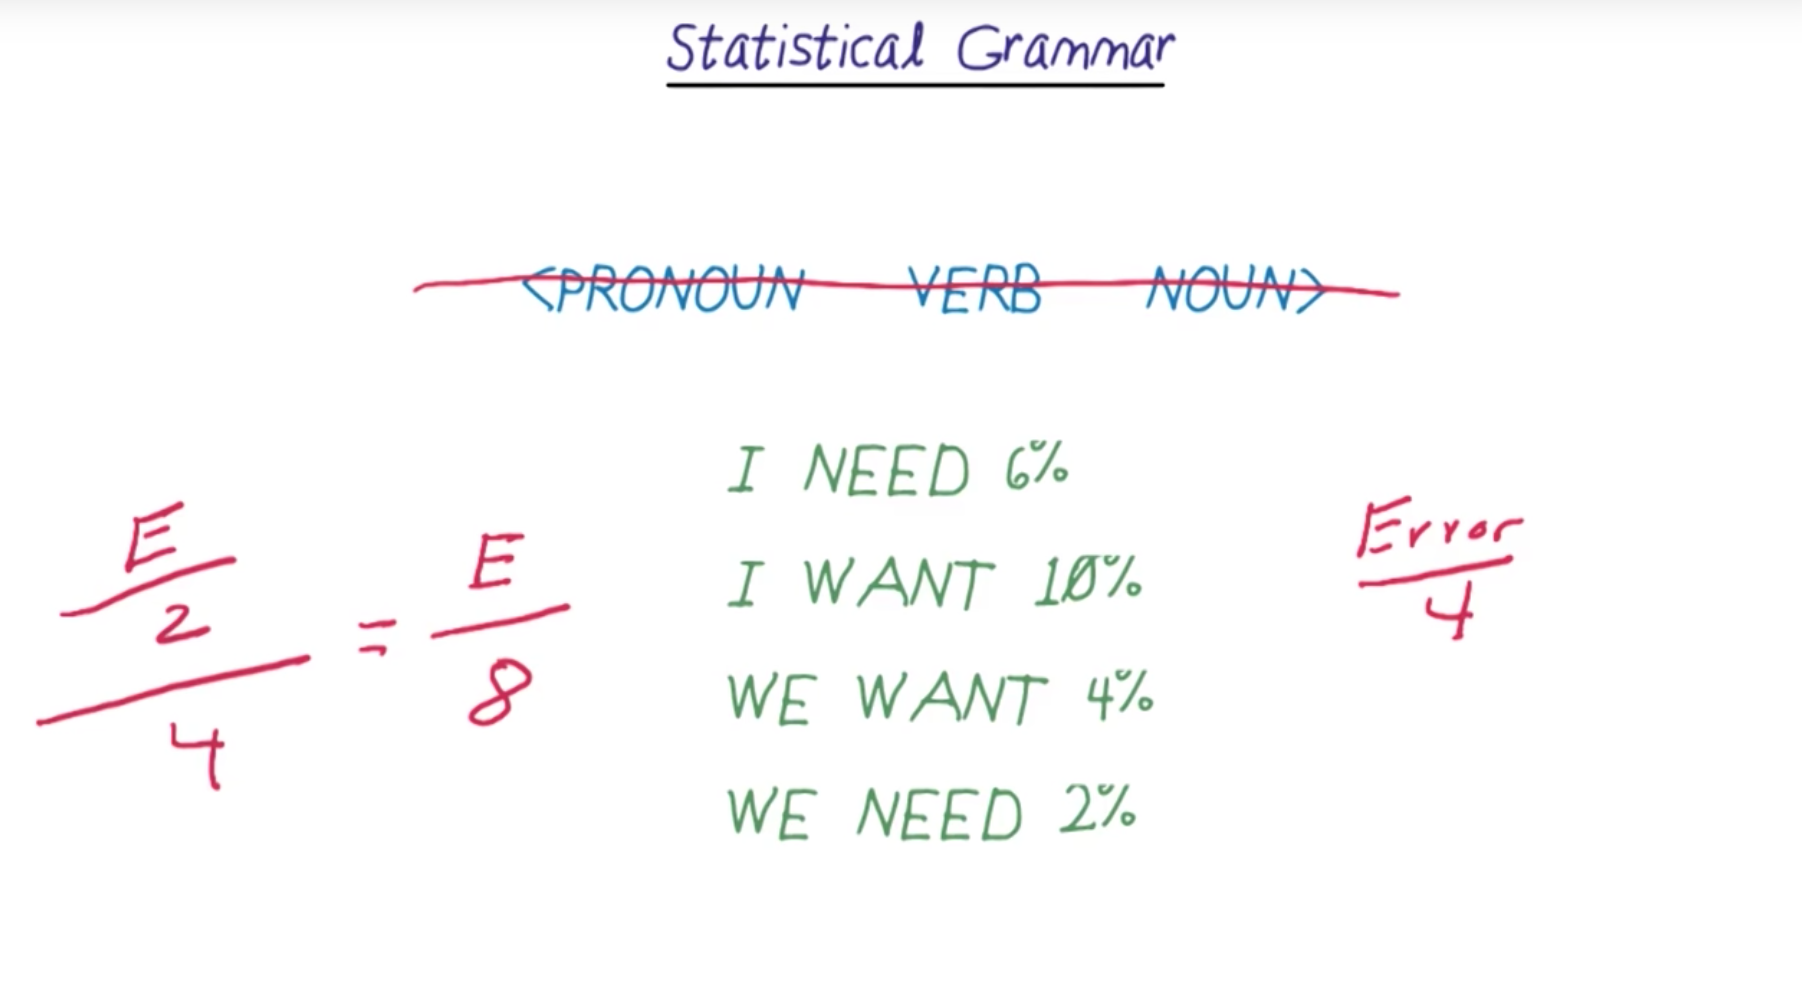 Statistical Grammar
<PRONOUN VERB NOUN>
I NEED 6%
I WANT 10%
WE WANT 4%
WE NEED 2%
E
2
4
=
E
8
Error
4